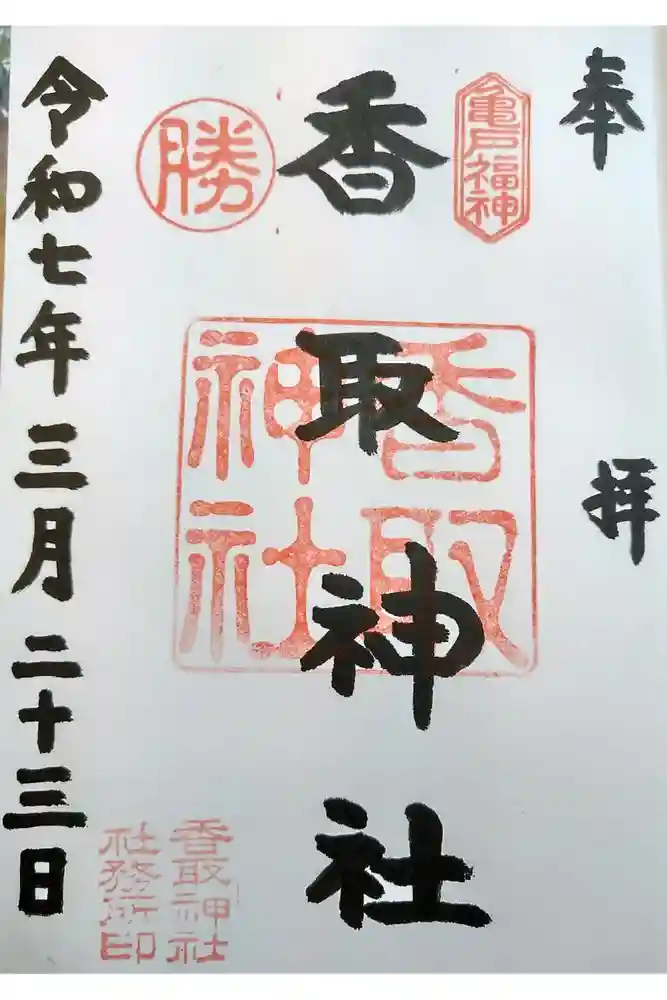 奉拝
亀戸福神
香取神社
勝
香取
神社
香取神社
社務所印
令和七年三月二十三日